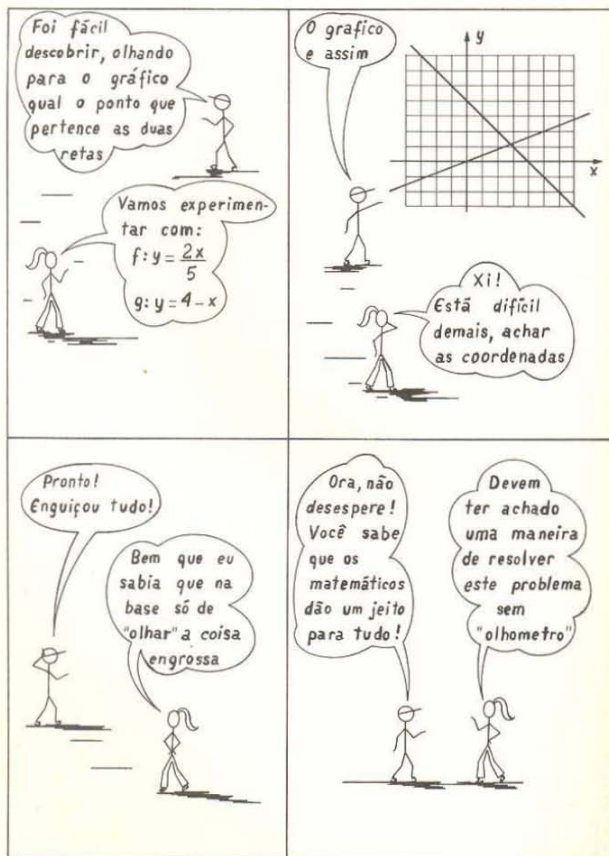 Foi fácil
descobrir, olhando
para o gráfico
qual o ponto que
pertence as duas
retas
Vamos experimen-
tar com:
f: y = 2x/5
g: y = 4 - x
O grafico
e assim
y
x
Xi!
Está difícil
demais, achar
as coordenadas
Pronto!
Enguiçou tudo!
Bem que eu
sabia que na
base só de
"olhar" a coisa
engrossa
Ora, não
desespere!
Você sabe
que os
matemáticos
dão um jeito
para tudo!
Devem
ter achado
uma maneira
de resolver
este problema
sem
"olhometro"